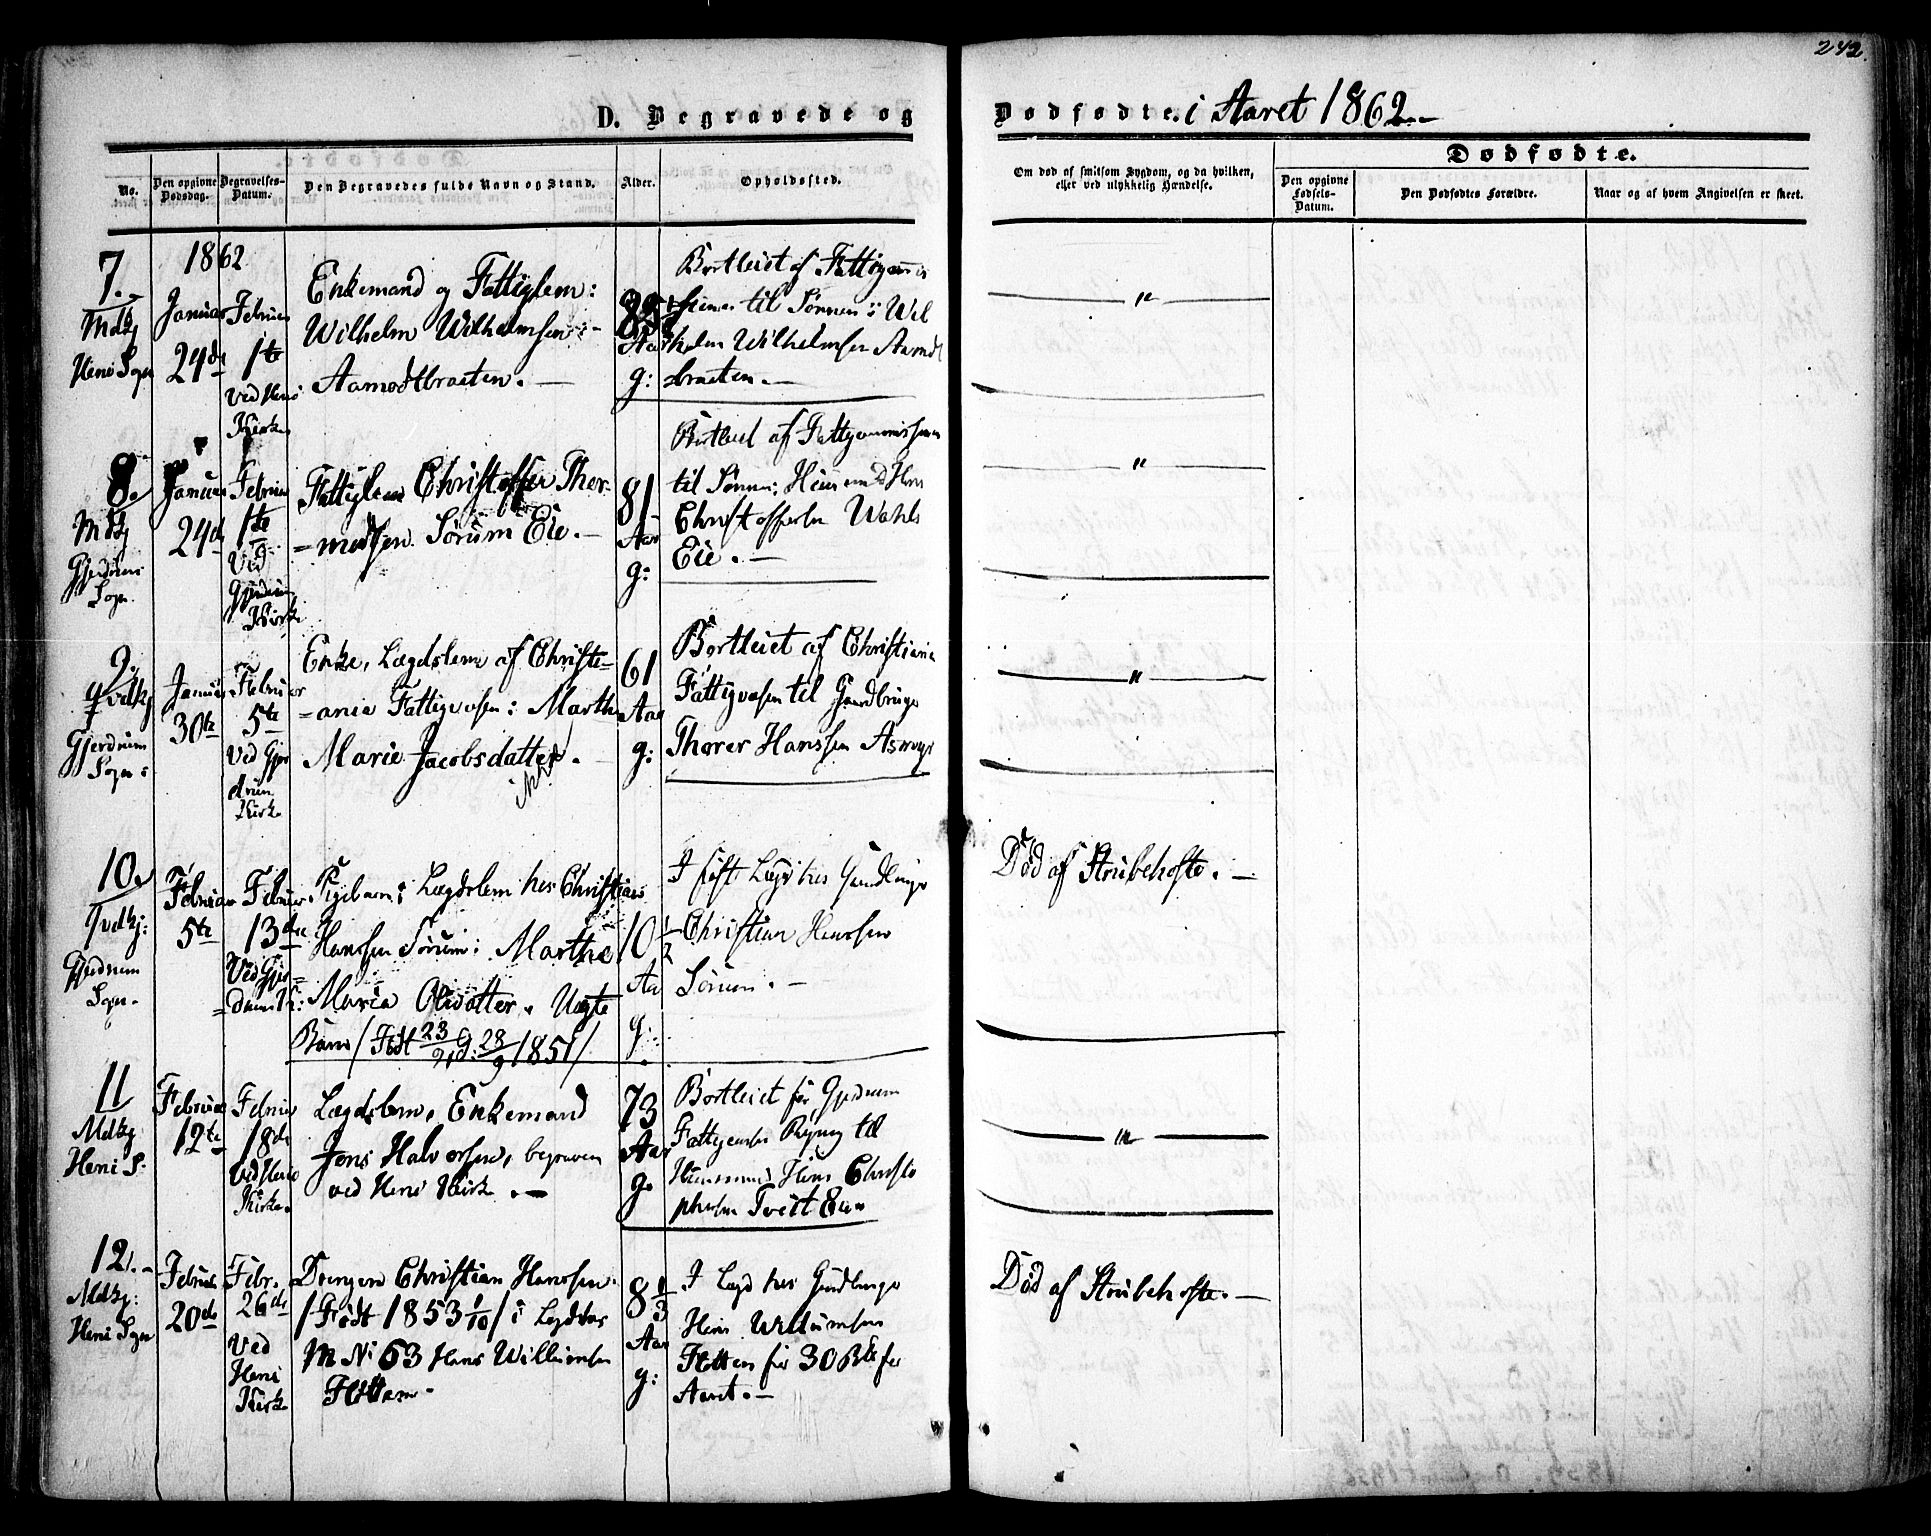 242.
D. Begravede og
Dødfødte. i Aaret 1862.
No.
Den opgivne Dødsdag.
Begravelses-Datum.
Den Begravedes fulde Navn og Stand.
Alder.
Opholdssted.
Om død af smitsom Sygdom, og da hvilken,
eller ved ulykkelig Hændelse.
Dødfødte.
Den opgivne Fødsels-Datum.
Den Dødfødtes Forældre.
Naar og af hvem Angivelsen er skeet.
1862
7.
Mdkj
Heni Sogn
Januar
24de
Februar
1te
ved Heni
Kirke
Enkemand og Fattiglem:
Wilhelm Wilhelmsen
Aamodtbraaten.
Aar
g:
Bortleiet af
til Sønnen: Wil
helm Wilhelmsen Aamdt
braaten.
"
8.
Mdkj
Gjerdrum
Sogn.
Januar
24de
Februar
1te
Ved
Gjerdrum
Kirke
Fattiglem Christoffer Thor-
=modsen Sørum Eie.
81
Aar
g:
Bortleiet af Fattigcommissionen
til Sønnen: Huusmand Hans
Christoffersen Wahls
Eie.
"
9.
Qvdkj
Gjerdrum
Sogn:
Januar
30te
Februar
5te
ved Gjer
drum
Kirke
Enke, Lægdslem af Christi=
=ania Fattigvæsen: Marthe
Marie Jacobsdatter.
61
Aar
g:
Bortleiet af Christiania
Fattigvæsen til Gaardbruger
Thorer Hanssen
"
10.
Qvdkj:
Gjerdrum
Sogn.
Februar
5te
Februar
13de
Ved Gjer=
=drum K:
Pigebarn: Lægdslem hos Christian
Hanssen Sørum: Marthe
Maria Olsdatter. Uægte
Barn / Født 23/ G: 28/9 1851/
10 1/2
Aar
g:
I fast Lægd hos Gaardbruger
Christian Hanssen
Sørum.
Død af Strubehoste.
11
Mdkj
Heni S:
Februar
12te
Februar
18de
ved Heni
Kirke.
Lægdslem, Enkemand
Jens Halvorsen, begraven
ved Heni Kirke.
73
Aar
g.
Bortleiet for Gjerdrum
Fattigcasses Regning til
Huusmand Hans Christo
phersen Tveit Eie
"
12.
Mdkj:
Heni Sogn
Februar
20de
Febr.
26de
Ved
Heni
Kirke
Drengen Christian Hanssen
/Født 1853 1/10/ i Lægd hos
M Nr 63 Hans Willumsen
8 1/3
Aar
g:
I Lægd hos Gaardbruger
Hans Willumsen
for 30 for
Aaret.
Død af Strubehoste.